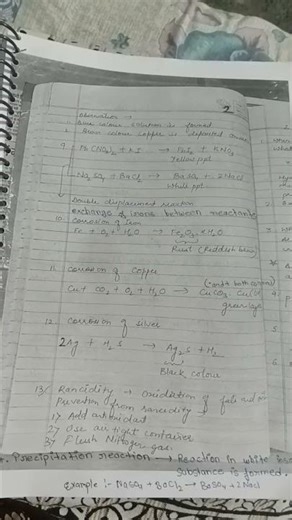 2
Observation →
Blue colour solution is formed
Brown colour copper is deposited
9. Pb(NO3)2 + KI → PbI2 + KNO3
Yellow ppt
Na2SO4 + BaCl2 → BaSO4 + 2NaCl
White ppt
Double displacement reaction
exchange of ions between reactants
10. Corrosion of Iron
Fe + O2 + H2O → Fe2O3.xH2O
Rust (Reddish brown)
11. Corrosion of Copper
Cu + CO2 + O2 + H2O → CuCO3.Cu(OH)
green
12. Corrosion of silver
2Ag + H2S → Ag2S + H2
Black colour
13. Rancidity → oxidation of fats and oil
Prevention from rancidity →
1) Add antioxidant
2) Use air tight container
3) Flush Nitrogen gas
Precipitation reaction → Reaction in white
Substance is formed.
Example :- NaSO4 + BaCl2 → BaSO4 + 2NaCl